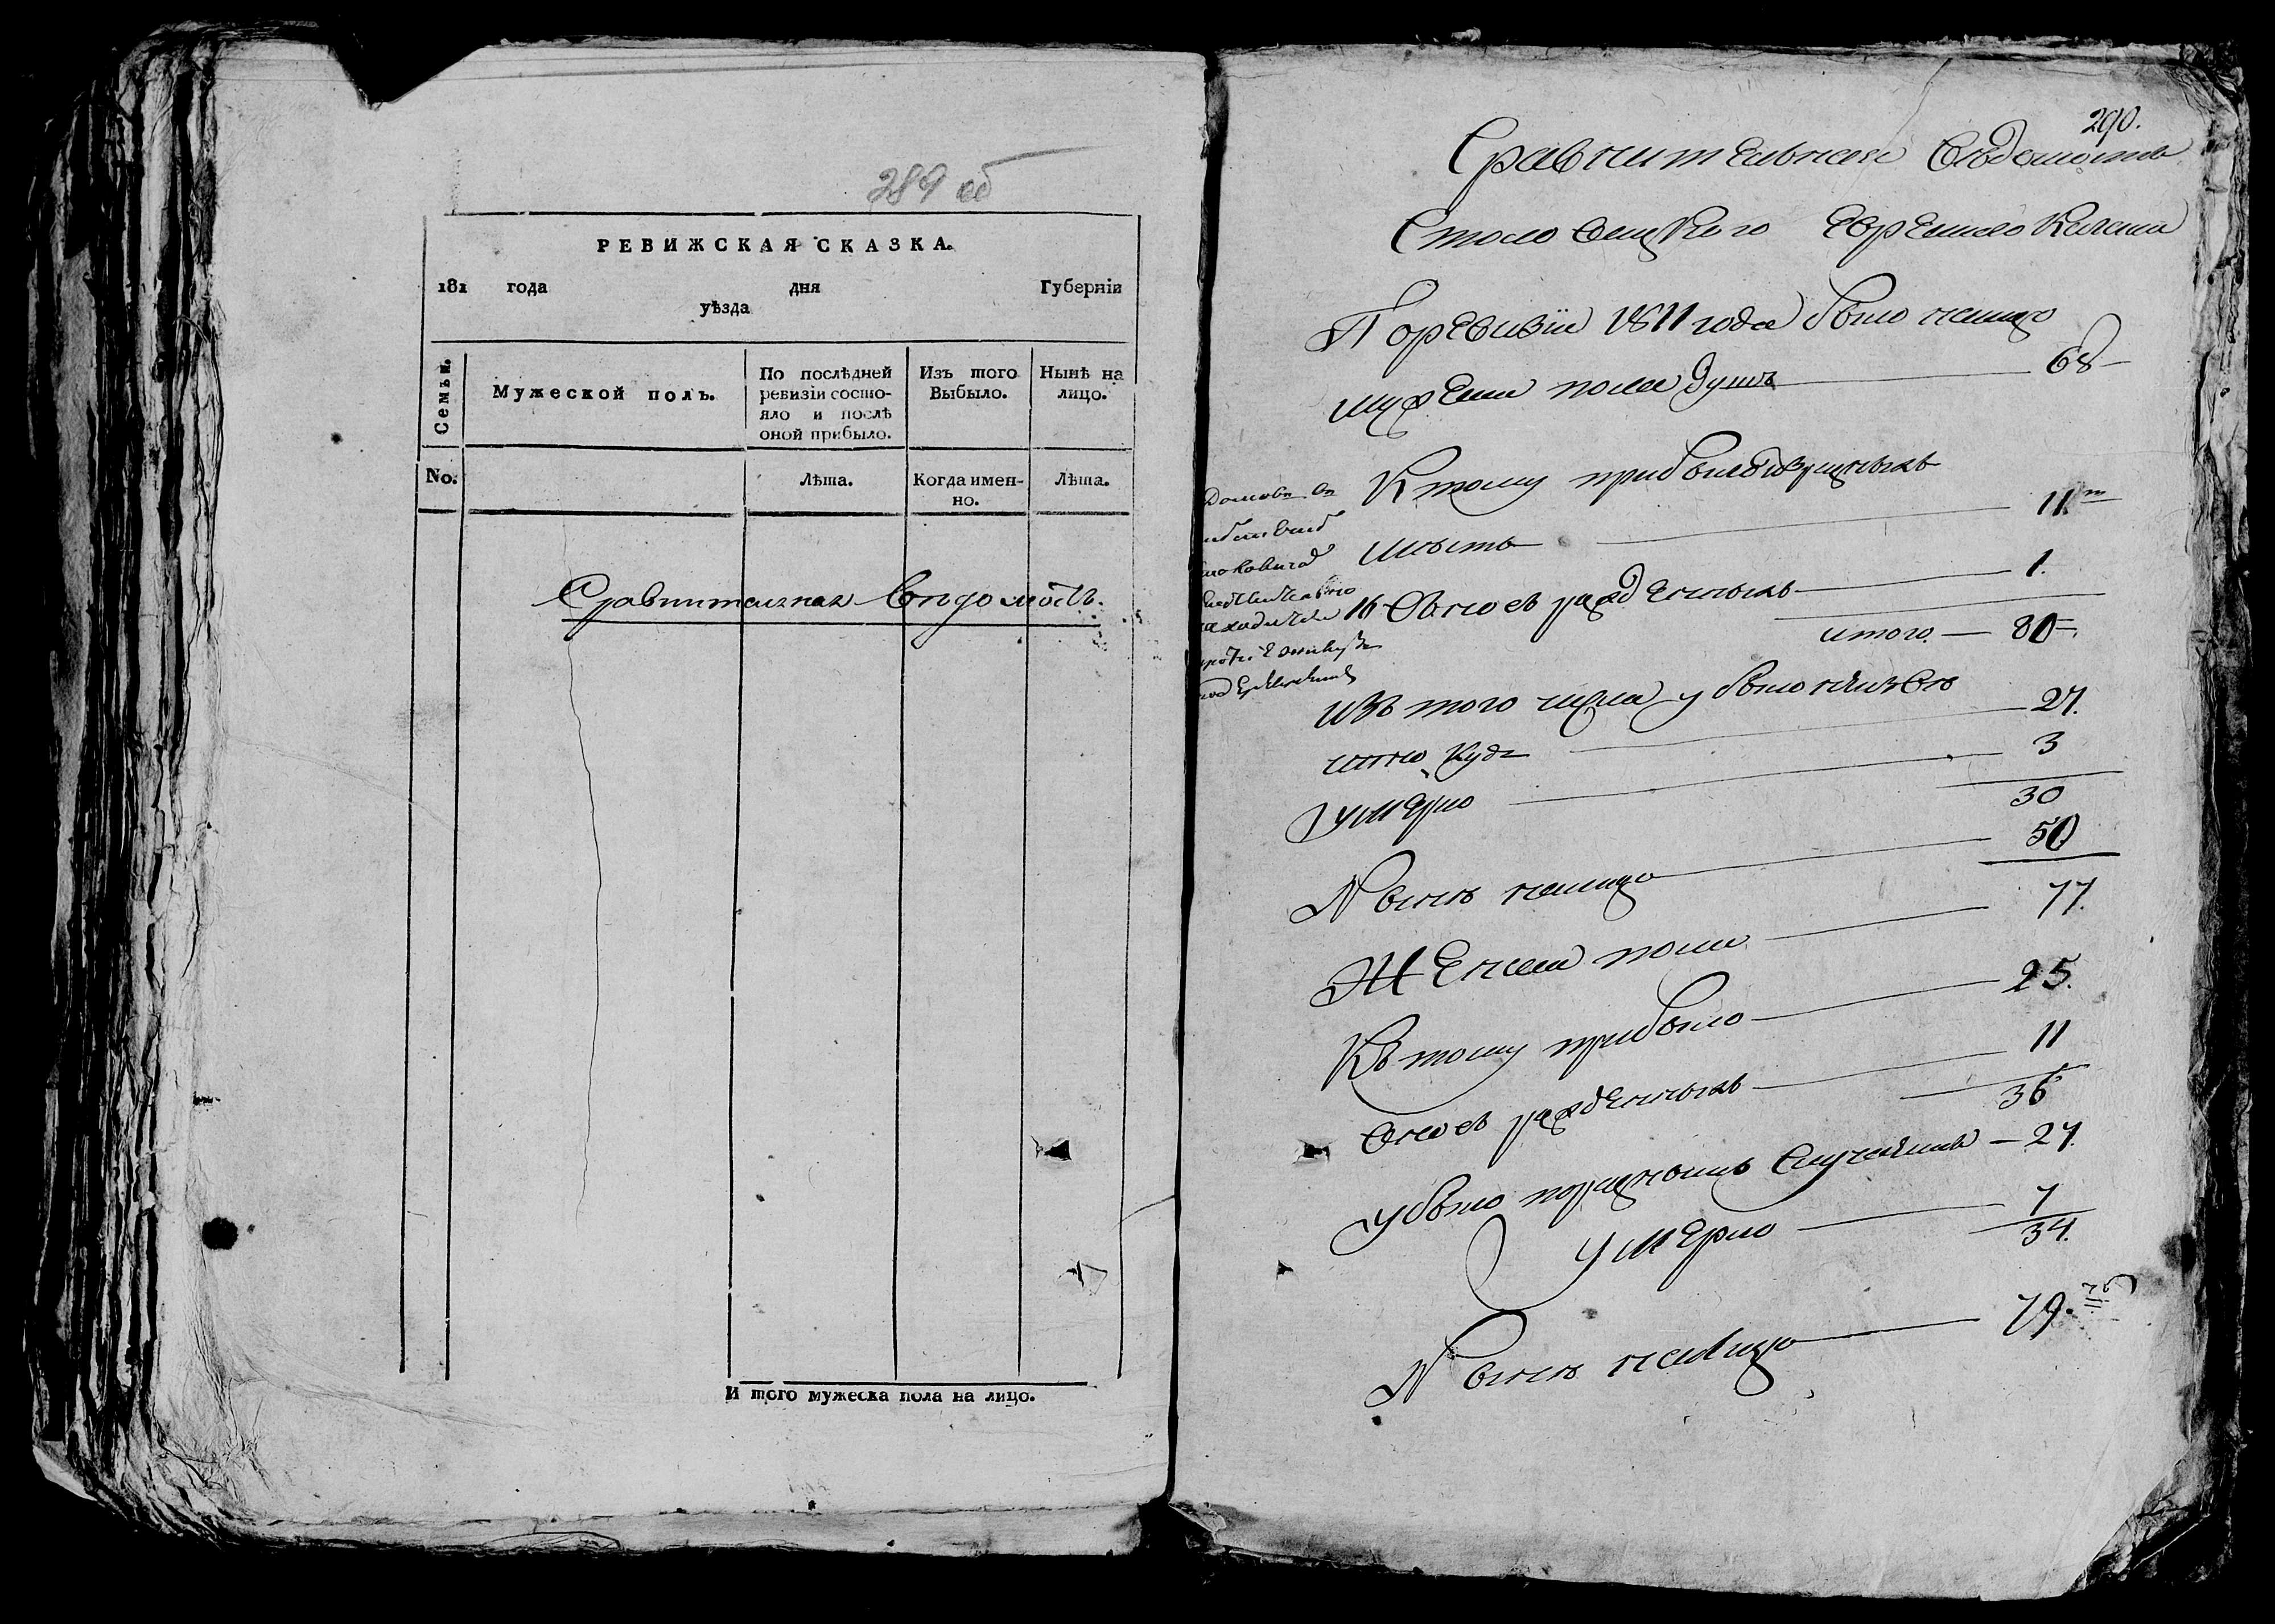 289 об
РЕВИЖСКАЯ СКАЗКА.
181 года дня Губерніи
уѣзда
Семьи.
Мужеской полъ.
По послѣдней ревизіи состояло и послѣ оной прибыло.
Изъ того Выбыло.
Нынѣ на лицо.
No.
Лѣта.
Когда именно.
Лѣта.
Сравнительная вѣдомость.
И того мужеска пола на лицо.
290.
Сравнительная Вѣдомость
Столовецкого Еврейского Кагала
По ревизіи 1811 года было налицо
мужеска пола душъ 68
К тому прибыло
мѣстъ 11
Вновь рожденныхъ 1.
итого 80
Изъ того числа убыло неизвѣ
стно куда 27.
Умерло 3
30
Нынѣ налицо 50
Женска пола 77.
Къ тому прибыло 25.
Вновь рожденныхъ 11
36
Убыло по разнымъ Случаямъ 27.
Умерло 7
34.
Нынѣ налицо 79.